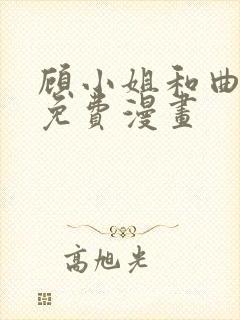 顾小姐和曲
免费漫畫
高旭光